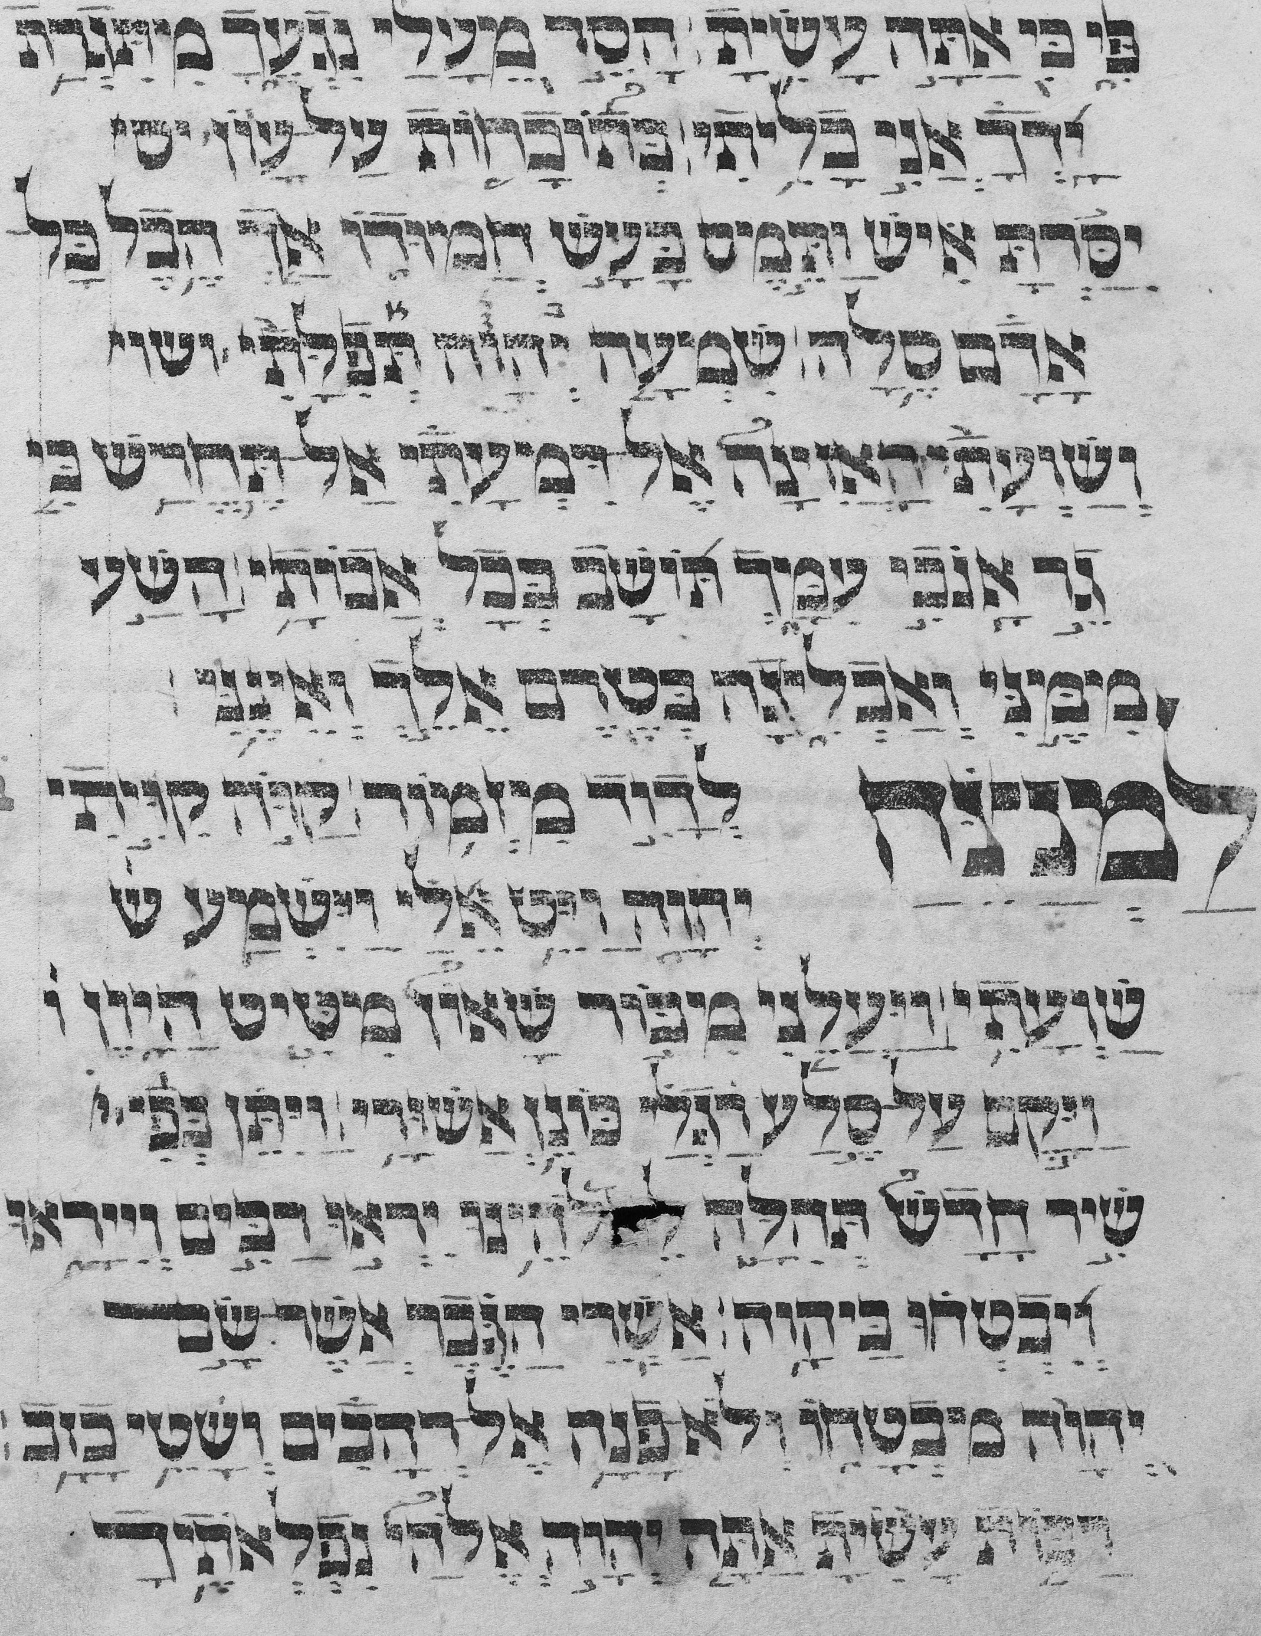 פִּי כִּי אַתָּה עָשִׂיתָ הָסֵר מֵעָלַי נִגְעֶךָ מִתִּגְרַת
יָדְךָ אֲנִי כָלִיתִי בְּתוֹכָחוֹת עַל עָוֹן יסי
יִסַּרְתָּ אִישׁ וַתֶּמֶס כָּעָשׁ חֲמוּדוֹ אַךְ הֶבֶל כָּל
אָדָם סֶלָה שִׁמְעָה יְהוָה תְּפִלָּתִי ושוי
וְשַׁוְעָתִי הַאֲזִינָה אֶל דִּמְעָתִי אַל תֶּחֱרַשׁ כִּי
גֵר אָנֹכִי עִמָּךְ תּוֹשָׁב כְּכָל אֲבוֹתָי הָשַׁע
מִמֶּנִּי וְאַבְלִיגָה בְּטֶרֶם אֵלֵךְ וְאֵינֶנִּי
לַמְנַצֵּחַ לְדָוִד מִזְמוֹר קַוֹּה קִוִּיתִי
יְהוָה וַיֵּט אֵלַי וַיִּשְׁמַע ש
שַׁוְעָתִי וַיַּעֲלֵנִי מִבּוֹר שָׁאוֹן מִטִּיט הַיָּוֵן ו
וַיָּקֶם עַל סֶלַע רַגְלַי כּוֹנֵן אֲשׁוּרָי וַיִּתֵּן בְּפִי
שִׁיר חָדָשׁ תְּהִלָּה לֵאלֹהֵינוּ יִרְאוּ רַבִּים וְיִירָאוּ
וְיִבְטְחוּ בַּיהוָה אַשְׁרֵי הַגֶּבֶר אֲשֶׁר שָׂם
יְהוָה מִבְטַחוֹ וְלֹא פָנָה אֶל רְהָבִים וְשָׂטֵי כָזָב
רַבּוֹת עָשִׂיתָ אַתָּה יְהוָה אֱלֹהַי נִפְלְאֹתֶיךָ